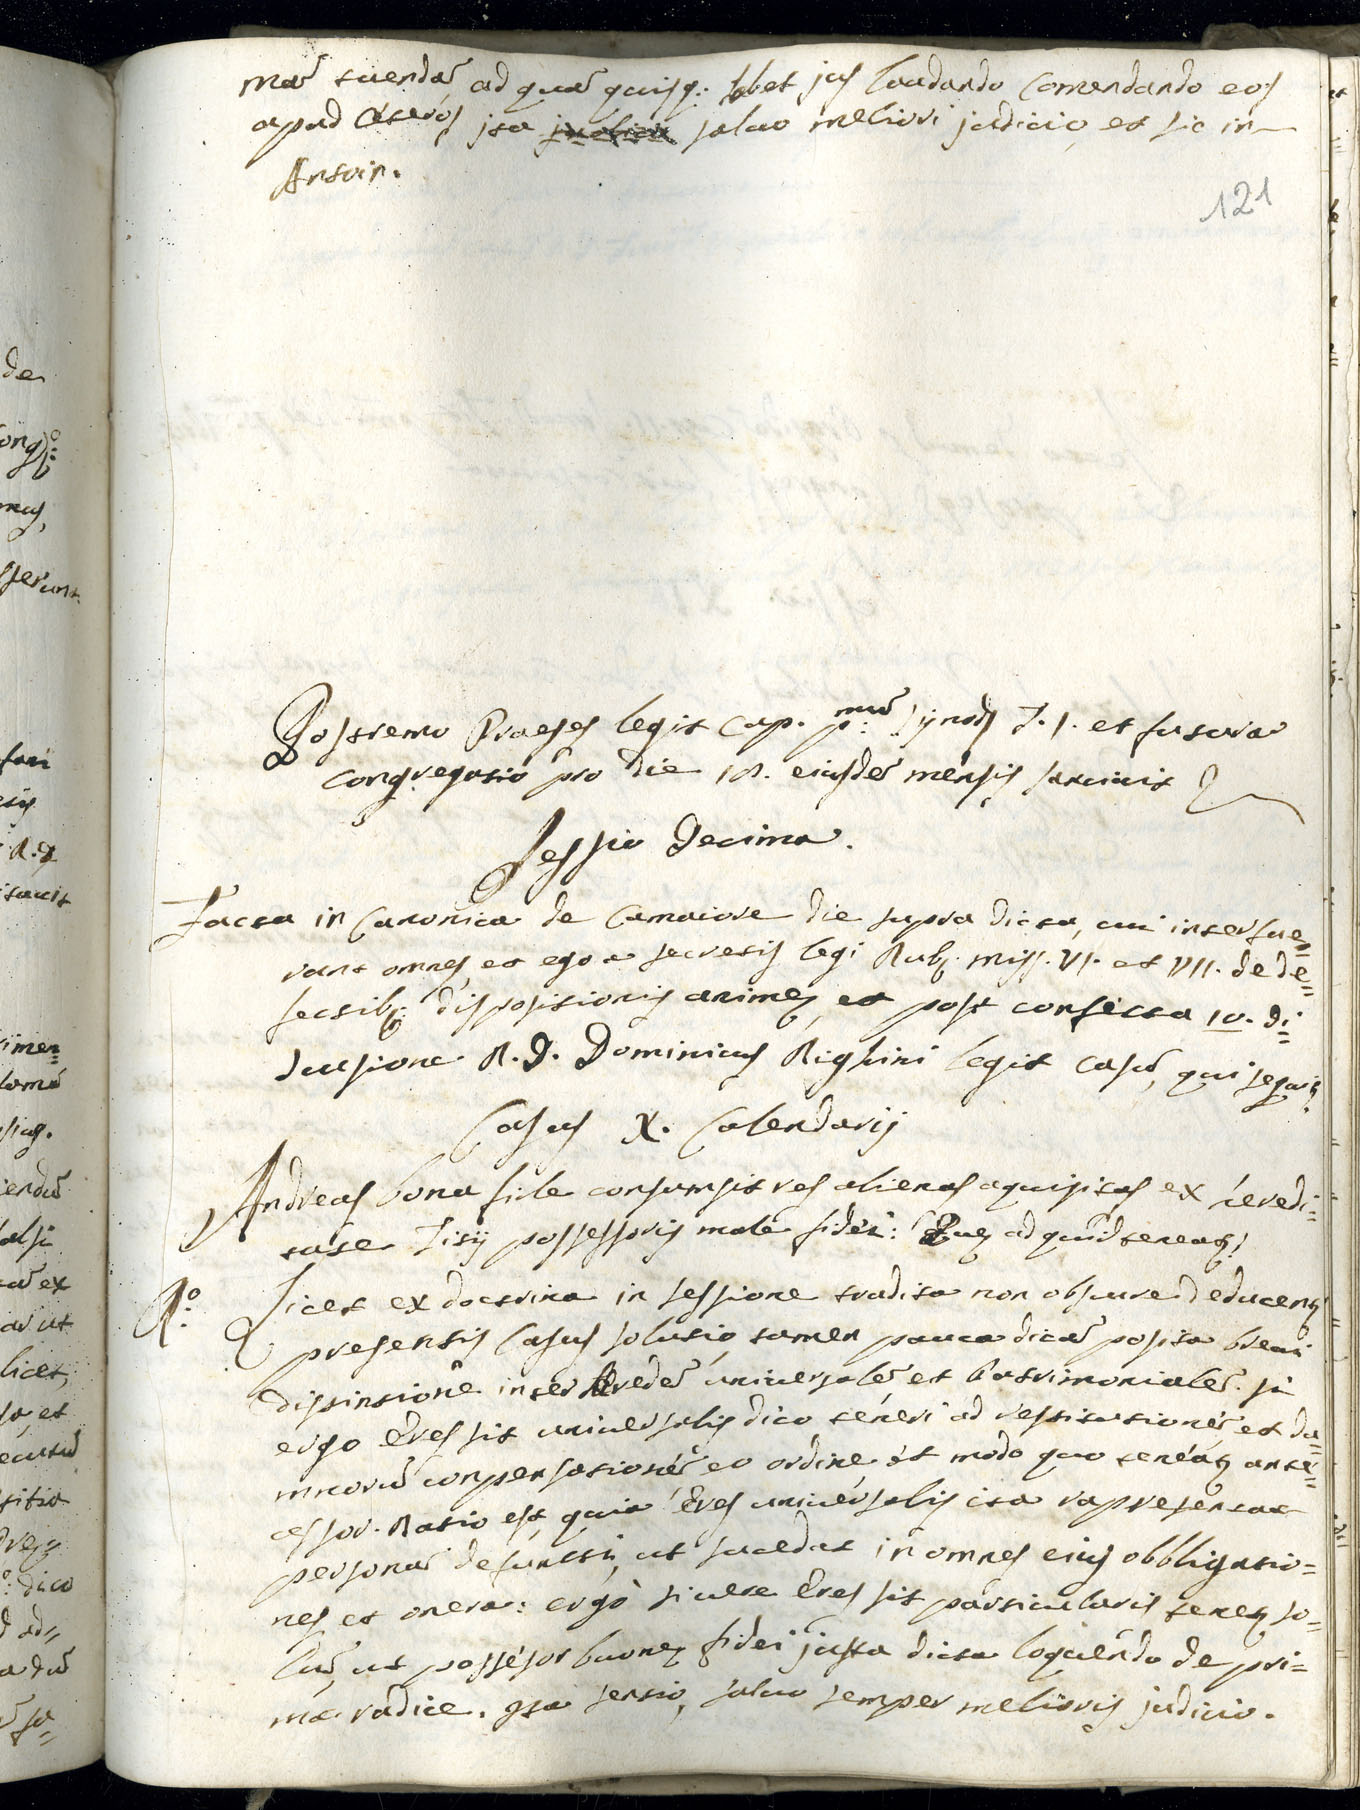 mã tuendã, ad quã quisq: hbet jus laudando Comendando eos
apud Céterós ita salvo meliori judicio, et sic in
Ansoin.
121
Postremo Praeses legit Cap. p:mũ Synodi T. 1. et futura
congregatiõ pro die 18. eiusdẽ mensis sancivit
Sessio Decima.
Facta in Canonica de Camaiore die supra dicta, cui interfue=
runt omnes, et ego a secretis legi Rub. miss. VI. et VII. de de=
fectib: dispositionis animę, et post confecta 10. di=
scusione R. D. Dominicus Righini legit Casũ, qui sequit
Casus X. Calendarij
Andreas bona fide consumsit res alienas aquisitas ex heredi=
tate Titij possessoris malę fidei: Quę ad quid teneat?
R:o Licet ex doctrina in sessione tradita non obscure deducent
presentis Casus solutio, tamen pauca dicã posita brevi
distintione inter hredẽ universalẽ et Patrimonialẽ. si
ergo hres sit universalis dico teneri ad restitutionẽ et da=
mnorũ conpensationẽ eo ordine et modo quo teneat ante=
cessor. Ratio est, quia hres universalis ita rapresentat
personã defuncti, ut succedat in omnes eius obbligatio=
nes et onera: ergo si vere hres sit particularis tenet so=
lũ, ut possesor buonę fidei justa dicta loquendo de pri=
ma radice. Ita sentio, salvo semper melioris judicio.
de
ong:
mus,
sserunt
R. D.
itavit
ximen=
lomũ
sius.
iendũ
alsi
tã ex
ar ut
licet,
ta et
ecutũ
sitio
: dico
d ad=
a dũ